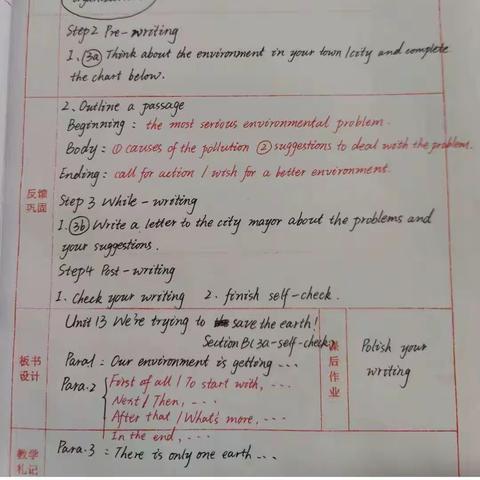 Step2 Pre-writing
1. 3a Think about the environment in your town/city and complete
the chart below.
2. Outline a passage
Beginning: the most serious environmental problem.
Body: ① causes of the pollution ② suggestions to deal with the problem.
Ending: call for action / wish for a better environment.
反馈
巩固
Step 3 While-writing
1. 3b Write a letter to the city mayor about the problems and
your suggestions.
Step4 Post-writing
1. Check your writing 2. finish self-check.
板书
设计
Unit 13 We're trying to save the earth!
Section B(3a-self-check)
Para1: Our environment is getting ...
Para.2 First of all / To start with, ...
Next / Then, ...
After that / What's more, ...
In the end, ...
Para.3: There is only one earth ...
课后作业
Polish your
writing
教学
札记